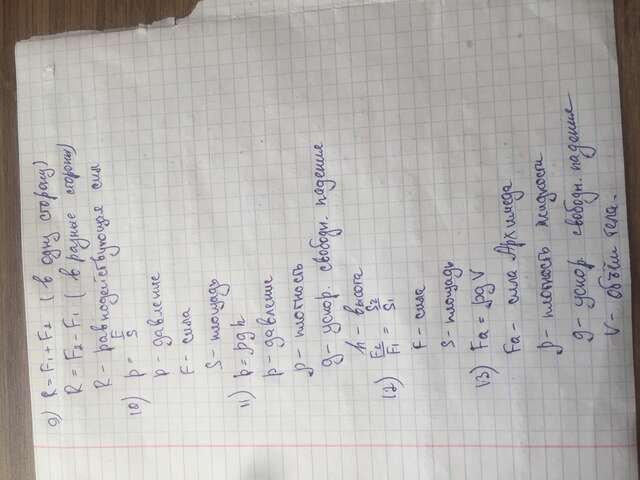 9) R = F₁ + F₂ (в одну сторону)
R = F₂ - F₁ (в разные стороны)
R - равнодействующая сил
10) p = F/S
p - давление
F - сила
S - площадь
11) p = ρgh
p - давление
ρ - плотность
g - ускор. свободн. падения
h - высота
12) F₂/F₁ = S₂/S₁
F - сила
S - площадь
13) Fa = ρgV
Fa - сила Архимеда
ρ - плотность жидкости
g - ускор. свободн. падения
V - объём тела.